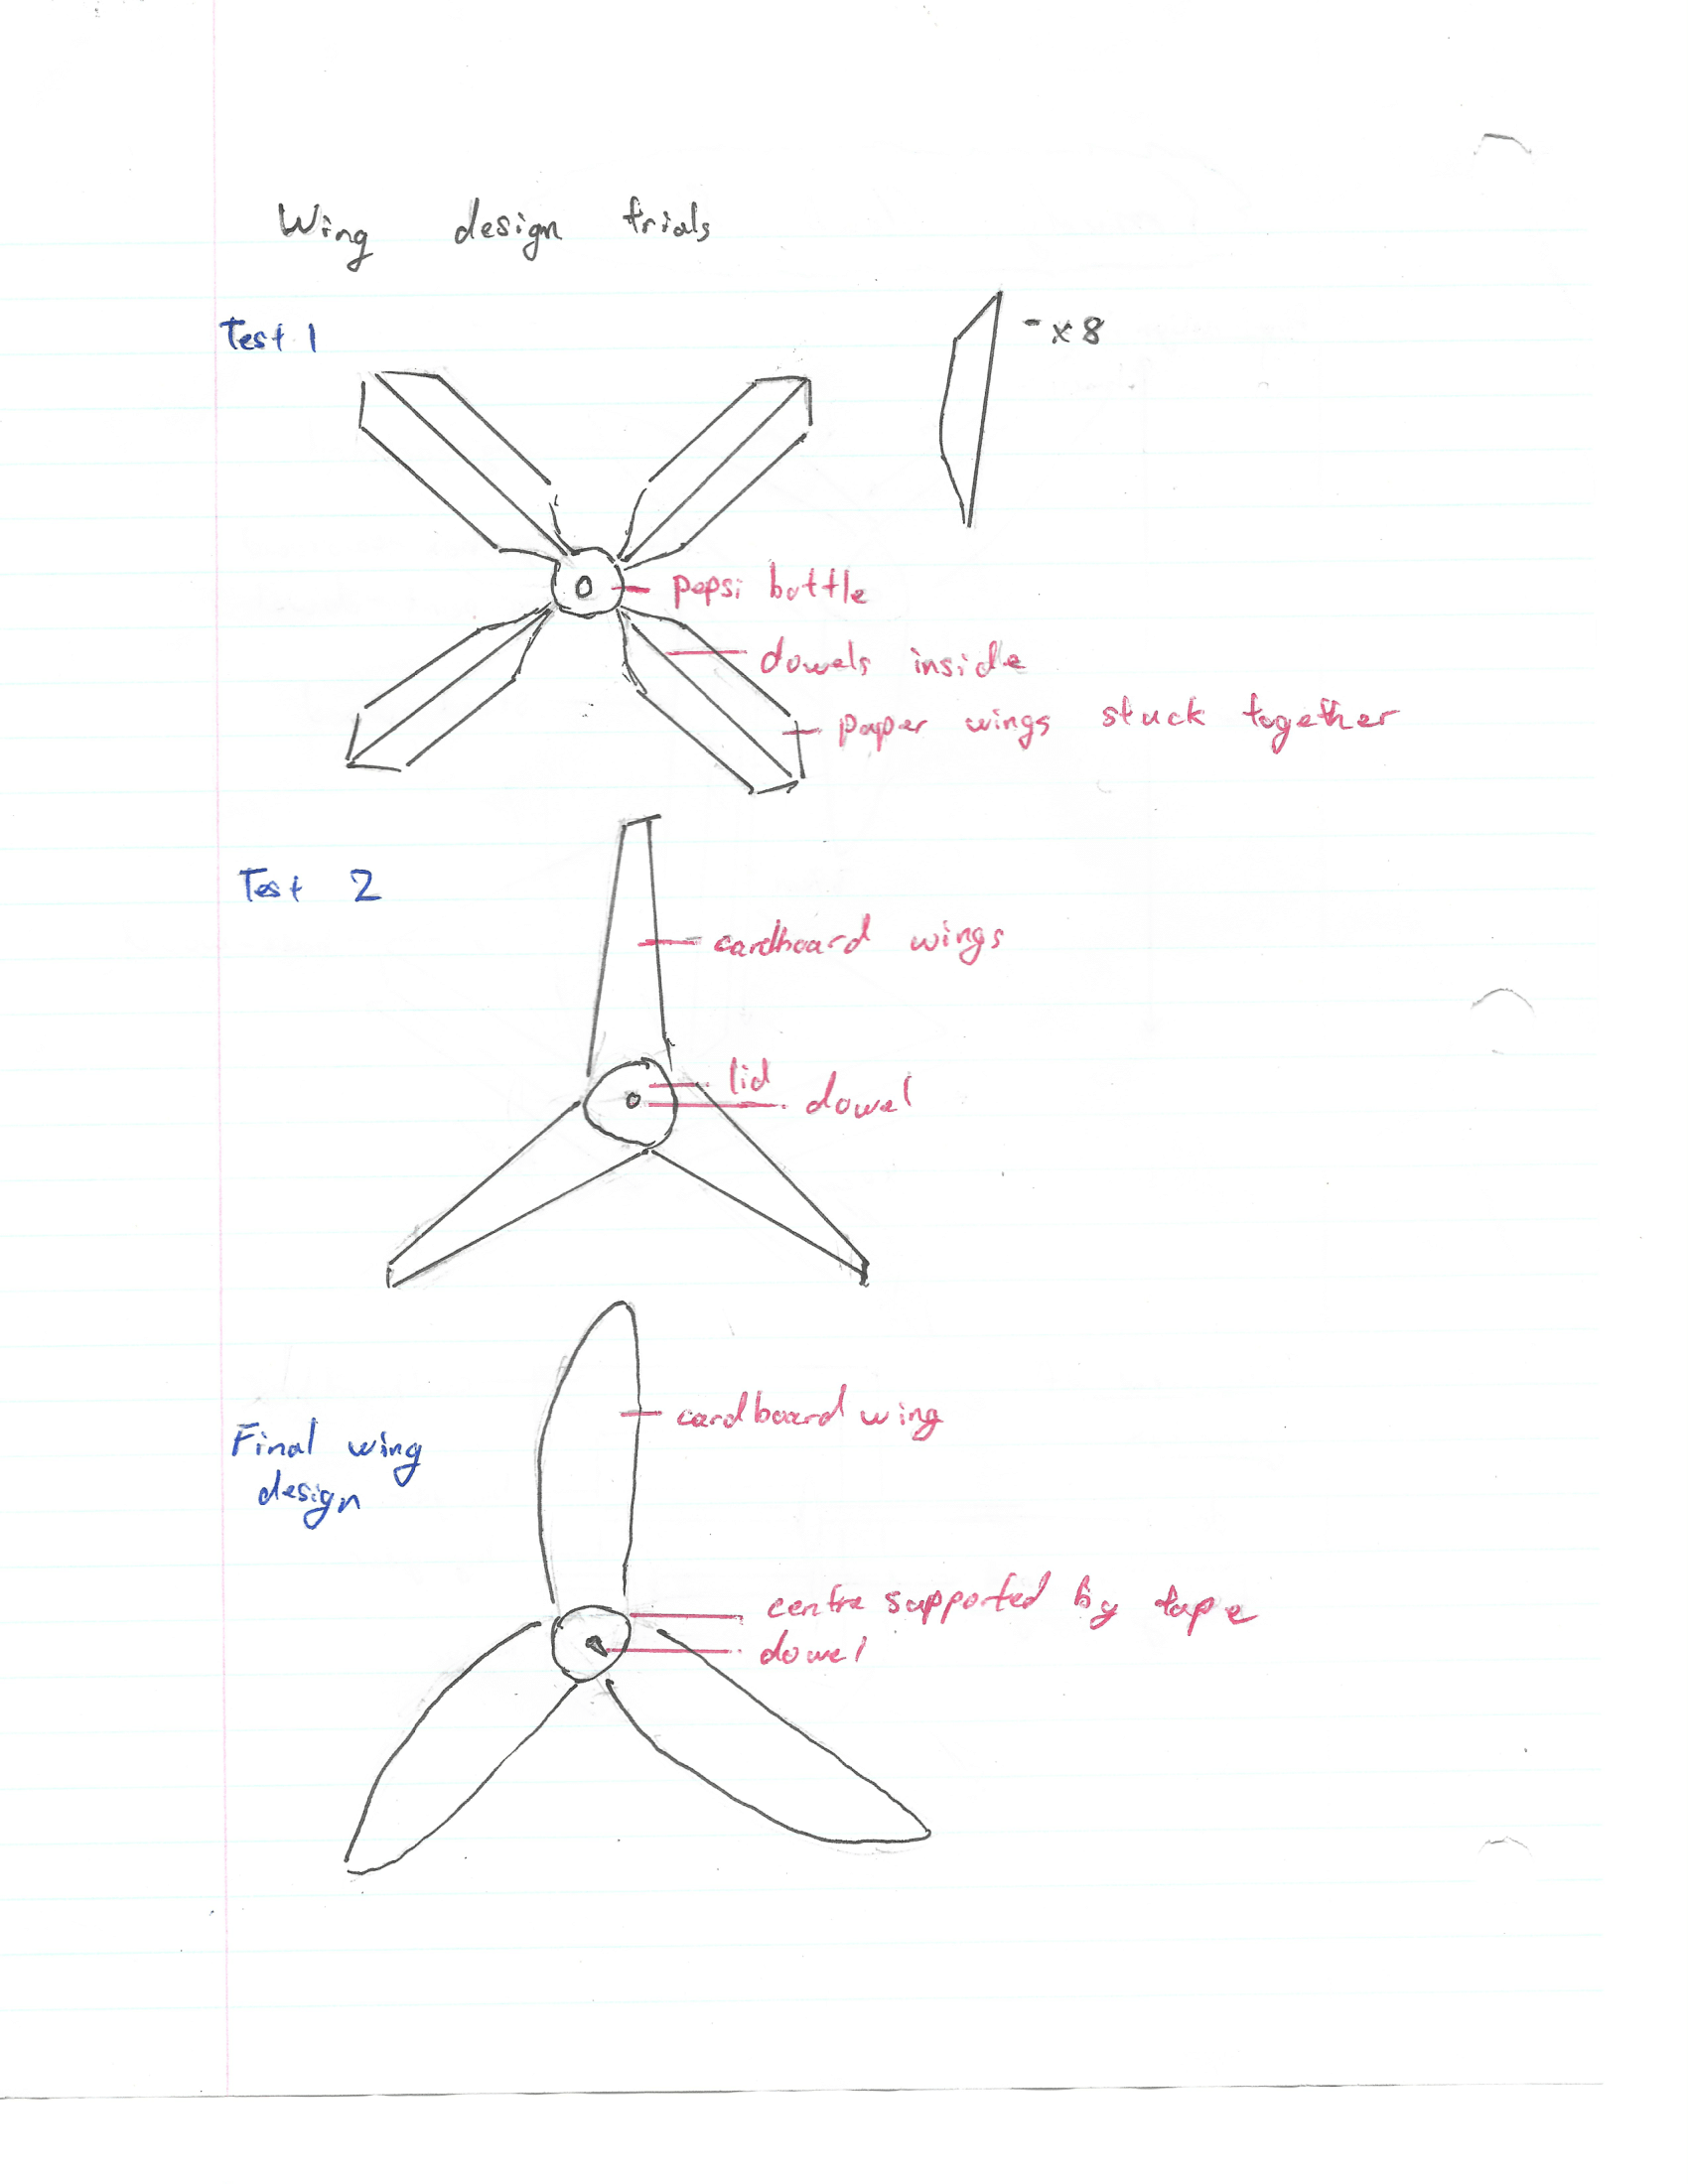 Wing design trials
Test 1
- x 8
pepsi bottle
dowels inside
paper wings stuck together
Test 2
cardboard wings
lid
dowel
cardboard wing
Final wing
design
centre supported by tape
dowel